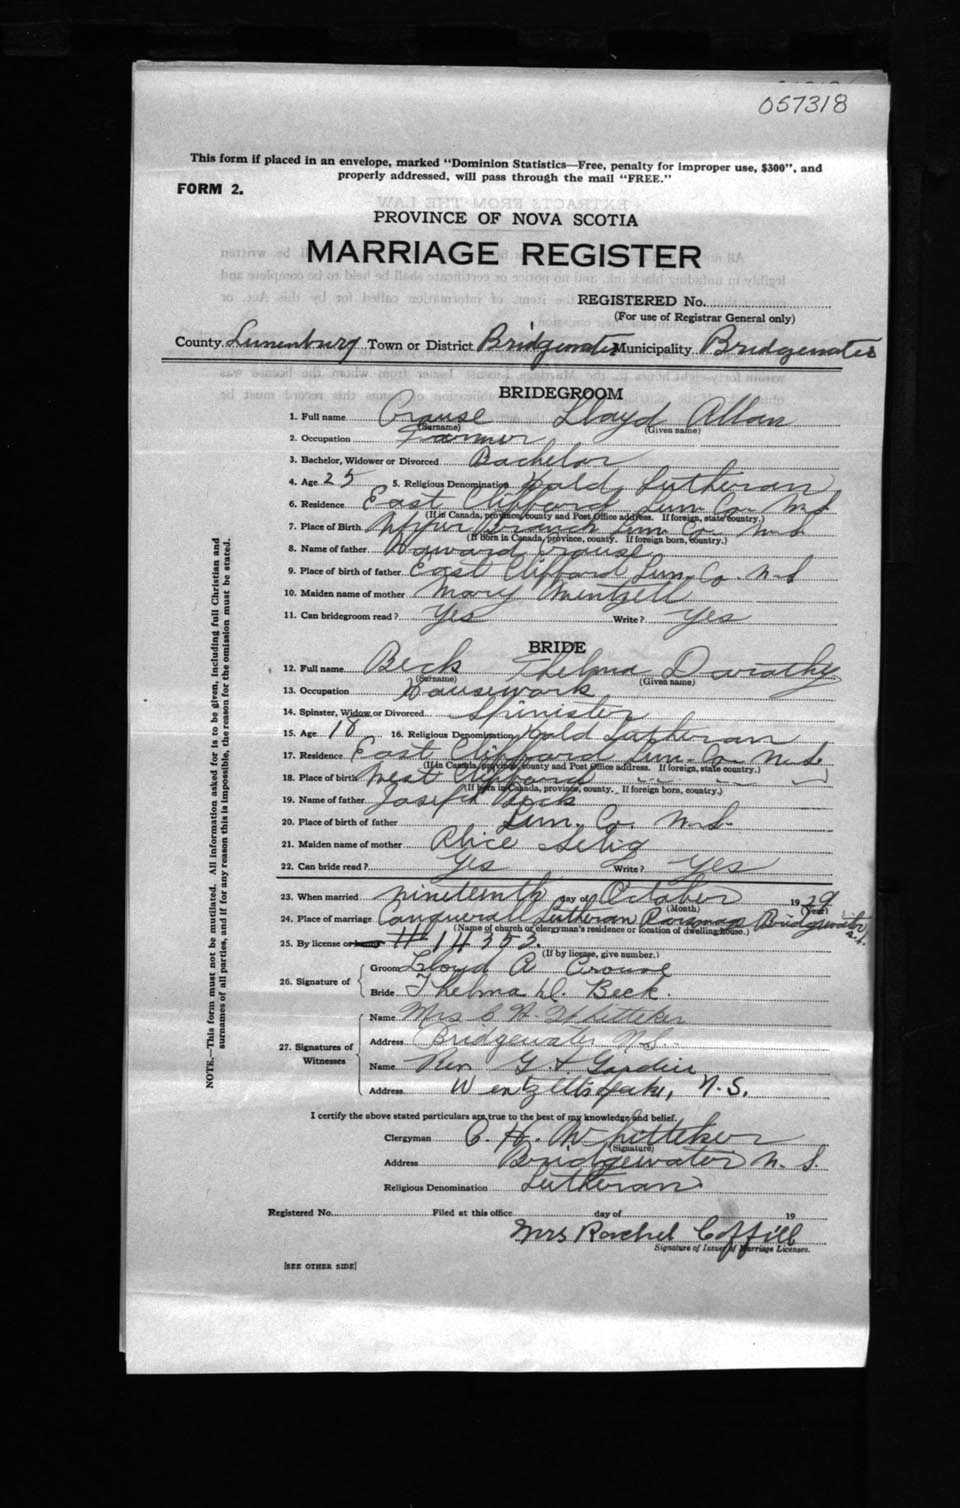 057318
This form if placed in an envelope, marked "Dominion Statistics—Free, penalty for improper use, $300", and
properly addressed, will pass through the mail "FREE."
FORM 2.
PROVINCE OF NOVA SCOTIA
MARRIAGE REGISTER
REGISTERED No.
(For use of Registrar General only)
County Lunenburg Town or District Bridgewater Municipality Bridgewater
BRIDEGROOM
1. Full name Crouse Lloyd Allan
(Surname) (Given name)
2. Occupation Farmer
3. Bachelor, Widower or Divorced Bachelor
4. Age 25 5. Religious Denomination Lutheran
6. Residence East Clifford Lun. Co. N.S.
(If in Canada, province, county and Post Office address. If foreign, state country.)
7. Place of Birth Upper Branch Lun. Co. N.S.
(If born in Canada, province, county. If foreign born, country.)
8. Name of father Howard Crouse
9. Place of birth of father East Clifford Lun. Co. N.S
10. Maiden name of mother Mary Wentzell
11. Can bridegroom read? Yes Write? Yes
BRIDE
12. Full name Beck Thelma Dorothy
(Surname) (Given name)
13. Occupation Housework
14. Spinster, Widow or Divorced Spinister
15. Age 18 16. Religious Denomination Lutheran
17. Residence East Clifford Lun. Co. N.S.
(If in Canada, province, county and Post Office address. If foreign, state country.)
18. Place of birth West Clifford " " "
(If born in Canada, province, county. If foreign born, country.)
19. Name of father Joseph Beck
20. Place of birth of father Lun. Co. N.S.
21. Maiden name of mother Alice Selig
22. Can bride read? Yes Write? Yes
23. When married nineteenth day of October 1929
(Month) (Year)
24. Place of marriage Conquerall Lutheran Parsonage Bridgewater N.S.
(Name of church or clergyman's residence or location of dwelling house.)
25. By license or # 14353.
(If by license, give number.)
26. Signature of
Groom Lloyd A Crouse
Bride Thelma D. Beck.
27. Signatures of Witnesses
Name Mrs C H. Whitteker
Address Bridgewater N.S.
Name Rev G.
Address Wentzells Lake, N.S.
I certify the above stated particulars are true to the best of my knowledge and belief.
Clergyman C. H. Whitteker
(Signature)
Address Bridgewater N.S.
Religious Denomination Lutheran
Registered No. Filed at this office day of 19
Mrs Rachel Coffill
Signature of Issuer of Marriage Licenses.
[SEE OTHER SIDE]
NOTE.—This form must not be mutilated. All information asked for is to be given, including full Christian and
surnames of all parties, and if for any reason this is impossible, the reason for the omission must be stated.